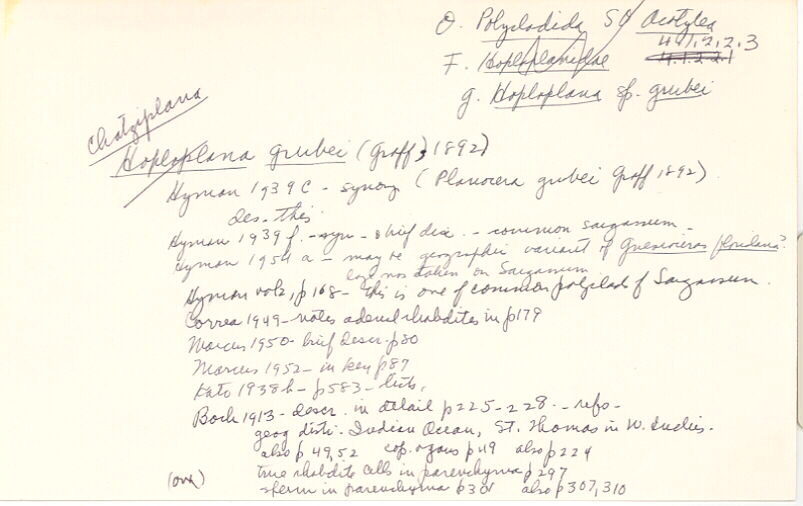 O. Polycladida SO Acotylea
4.1.2.2.3
F. Hoploplanidae 4.1.2.2.1
g. Hoploplana sp. grubei
Chatziplana
Hoploplana grubei (Graff, 1892)
Hyman 1939 C - synon (Planocera grubei Graff 1892)
des. this
Hyman 1939 f. - syn - brief disc. - common sargassum -
Hyman 1954 a - may be geographic variant of Gnesioceros floridana?
but not taken on Sargassum
Hyman vol 2, p 168 - this is one of common polyclads of Sargassum.
Correa 1949 - notes adenal rhabdites in p179
Marcus 1950 - brief descr. p80
Marcus 1952 - in key p87
Kato 1938 b - p583 - lists.
Bock 1913 - descr. in detail p225-228 - refs -
geog distri. Indian Ocean, St. Thomas in W. Indies.
also p 49, 52 cop. organs p 119 also p 224
true rhabdite cells in parenchyma p 297
(over) sperm in parenchyma p 301 also p 307, 310